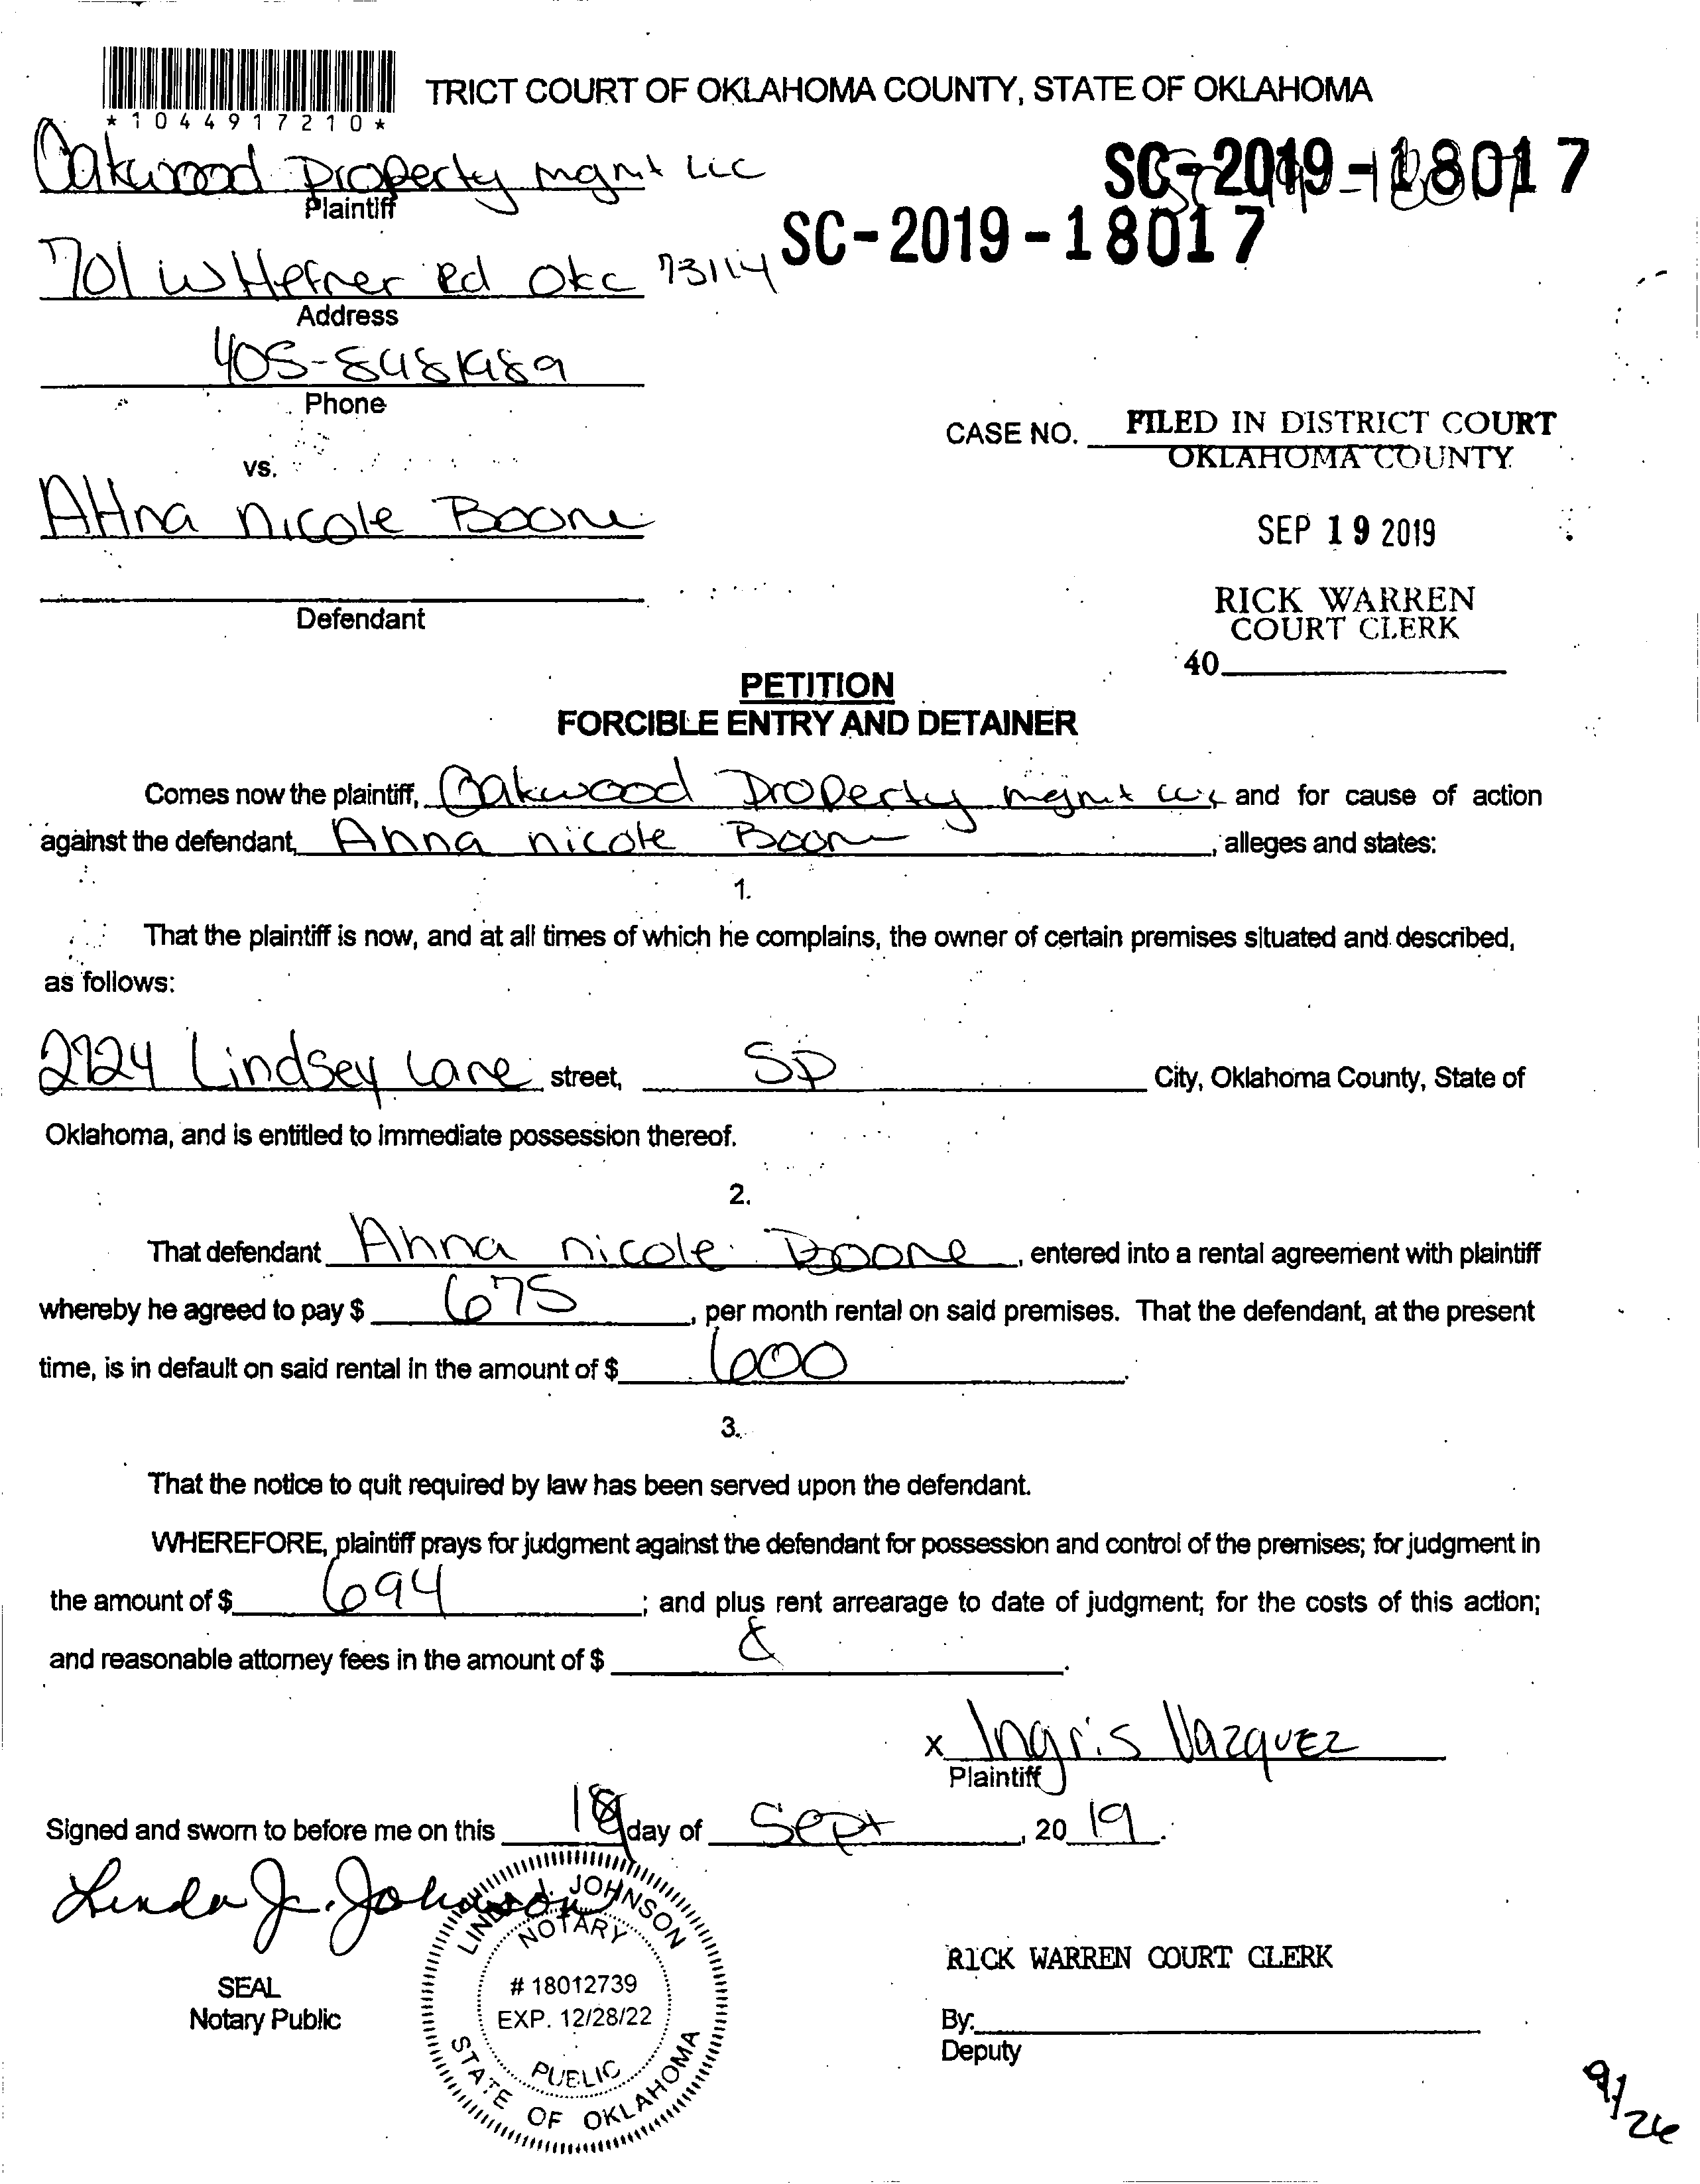 *1044917210*
TRICT COURT OF OKLAHOMA COUNTY, STATE OF OKLAHOMA
Oakwood Property mgmt LLC
Plaintiff
SC-2019-18017
SC-2019-18017
701 W Hefner Rd OKC 73114
Address
405-8481989
Phone
CASE NO.
FILED IN DISTRICT COURT
OKLAHOMA COUNTY
vs.
Anna Nicole Boone
SEP 19 2019
Defendant
RICK WARREN
COURT CLERK
40
PETITION
FORCIBLE ENTRY AND DETAINER
Comes now the plaintiff, Oakwood Property mgmt LLC and for cause of action
against the defendant, Anna nicole Boone, alleges and states:
1.
That the plaintiff is now, and at all times of which he complains, the owner of certain premises situated and described,
as follows:
2724 Lindsey Lane street, SP City, Oklahoma County, State of
Oklahoma, and is entitled to immediate possession thereof.
2.
That defendant Anna nicole Boone, entered into a rental agreement with plaintiff
whereby he agreed to pay $ 675, per month rental on said premises. That the defendant, at the present
time, is in default on said rental in the amount of $ 600.
3.
That the notice to quit required by law has been served upon the defendant.
WHEREFORE, plaintiff prays for judgment against the defendant for possession and control of the premises; for judgment in
the amount of $ 694; and plus rent arrearage to date of judgment; for the costs of this action;
and reasonable attorney fees in the amount of $
x Ingris Vazquez
Plaintiff
Signed and sworn to before me on this 19 day of Sept, 20 19.
Linda J. Johnson
LINDA J. JOHNSON
NOTARY
# 18012739
EXP. 12/28/22
PUBLIC
STATE OF OKLAHOMA
SEAL
Notary Public
RICK WARREN COURT CLERK
By:
Deputy
9/26